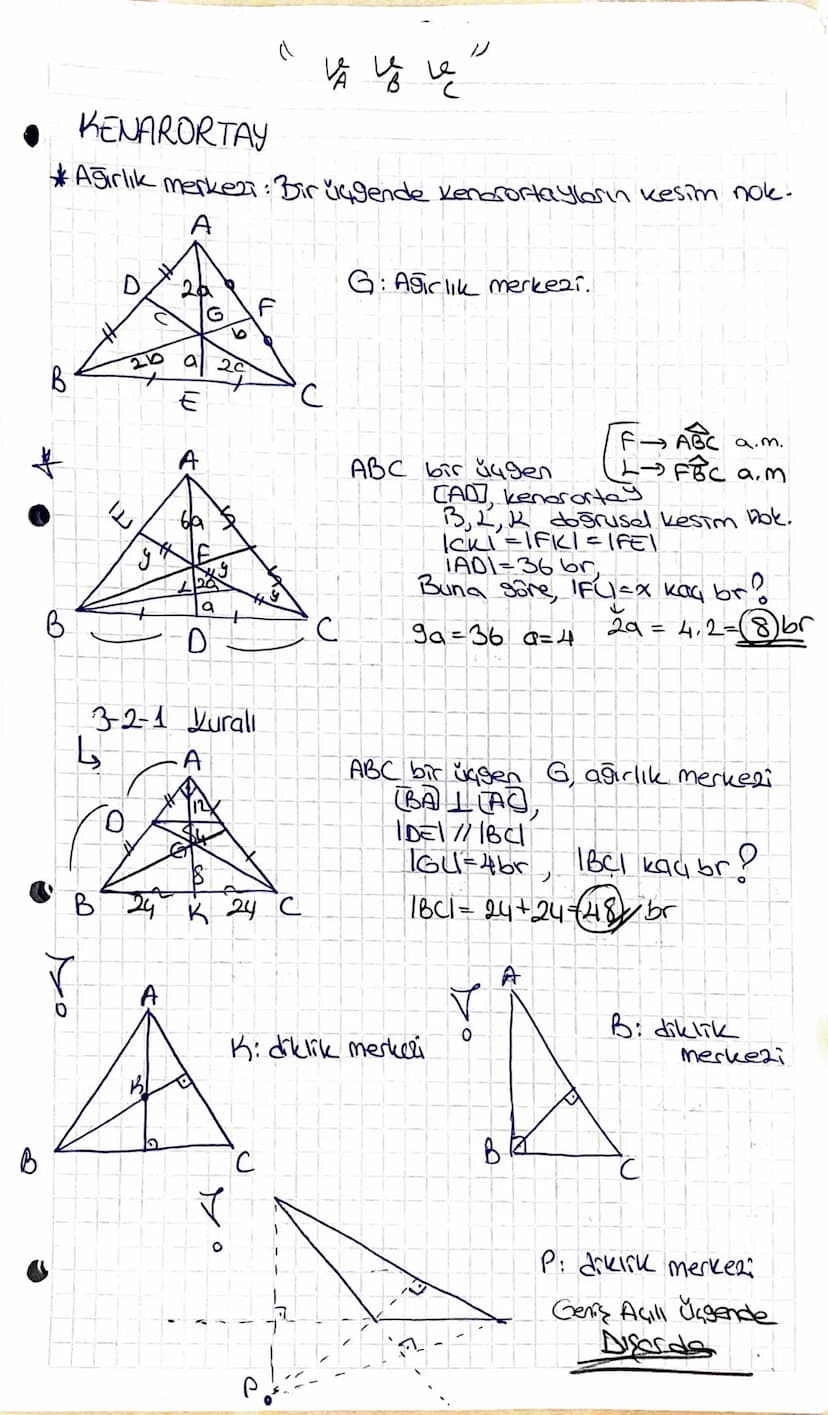 " VA VB VC "
KENARORTAY
* Ağırlık merkezi: Bir üçgende kenarortayların kesim nok.
A
D 2a G F
c b
2b a 2c
B E C
G: Ağırlık merkezi.
F → ABC a.m.
L → FBC a.m
A
E 6a
y F y
L 2a y
a
B D C
ABC bir üçgen
[AD], kenarortay
B, L, K doğrusal kesim nok.
|CK| = |FK| = |FE|
|AD| = 36 br,
Buna göre, |FL| = x kaç br?
9a = 36 a = 4 2a = 4.2 = 8 br
3-2-1 Kuralı
A
12
D 4
G
8
B 24 K 24 C
ABC bir üçgen G, ağırlık merkezi
[BA] ⊥ [AC],
|DE| // |BC|
|GL| = 4br, |BC| kaç br?
|BC| = 24 + 24 = 48 br
A
K
B C
K: diklik merkezi
A
B C
B: diklik
merkezi
P
P: diklik merkezi
Geniş Açılı Üçgende
Dışarda